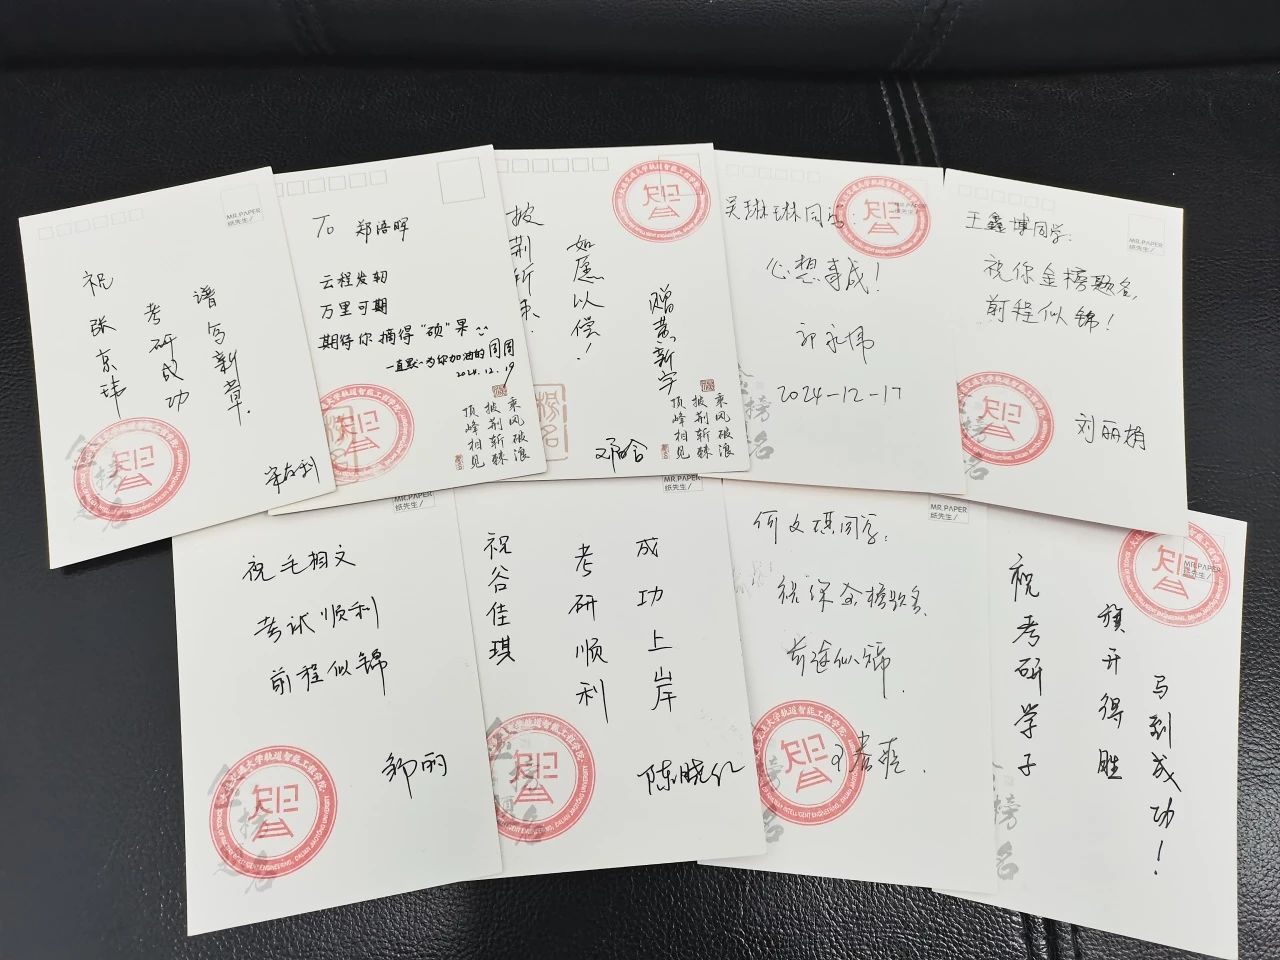 MR.PAPER
纸先生/
祝张京玮
考研成功
谱写新章.
金榜题名
To 郑浩晖
云程发轫
万里可期
期待你摘得“硕”果
一直默默为你加油的同同
2024.12.19
乘风破浪
披荆斩棘
顶峰相见
披荆斩棘.
如愿以偿!
赠黄新宇
乘风破浪
披荆斩棘
顶峰相见
大连交通大学轨道智能工程学院
吴琳琳同学:
心想事成!
2024-12-17
王鑫博同学:
MR.PAPER
纸先生/
祝你金榜题名,
前程似锦!
刘丽娟
祝毛相文
考试顺利
前程似锦
邹丽
MR.PAPER
纸先生/
大连交通大学轨道智能工程学院
SCHOOL OF RAILWAY INTELLIGENT ENGINEERING, DALIAN JIAOTONG UNIVERSITY
祝谷佳琪
考研顺利
成功上岸
陈晓红
MR.PAPER
纸先生/
何文琪同学:
祝你金榜题名,
前途似锦.
MR.PAPER
纸先生/
祝考研学子
旗开得胜
马到成功!
MR.PAPER
纸先生/